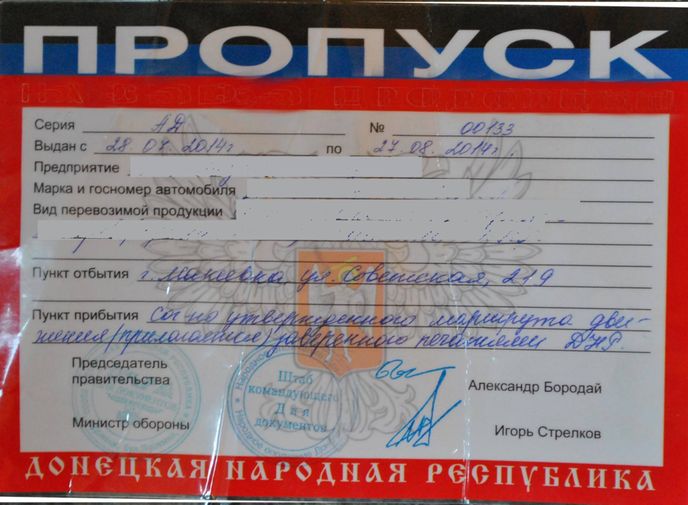 ПРОПУСК
Серия АД № 00133
Выдан с 28.07.2014г. по 27.08.2014г.
Предприятие
Марка и госномер автомобиля
Вид перевозимой продукции
Пункт отбытия г. Макеевка, ул. Советская, 219
Пункт прибытия Согласно утвержденного маршрута дви-
жения/приложение/заверенного печатями ДНР.
Председатель
правительства
Александр Бородай
Министр обороны
Игорь Стрелков
Штаб
командующего
Для
документов
ДОНЕЦКАЯ НАРОДНАЯ РЕСПУБЛИКА